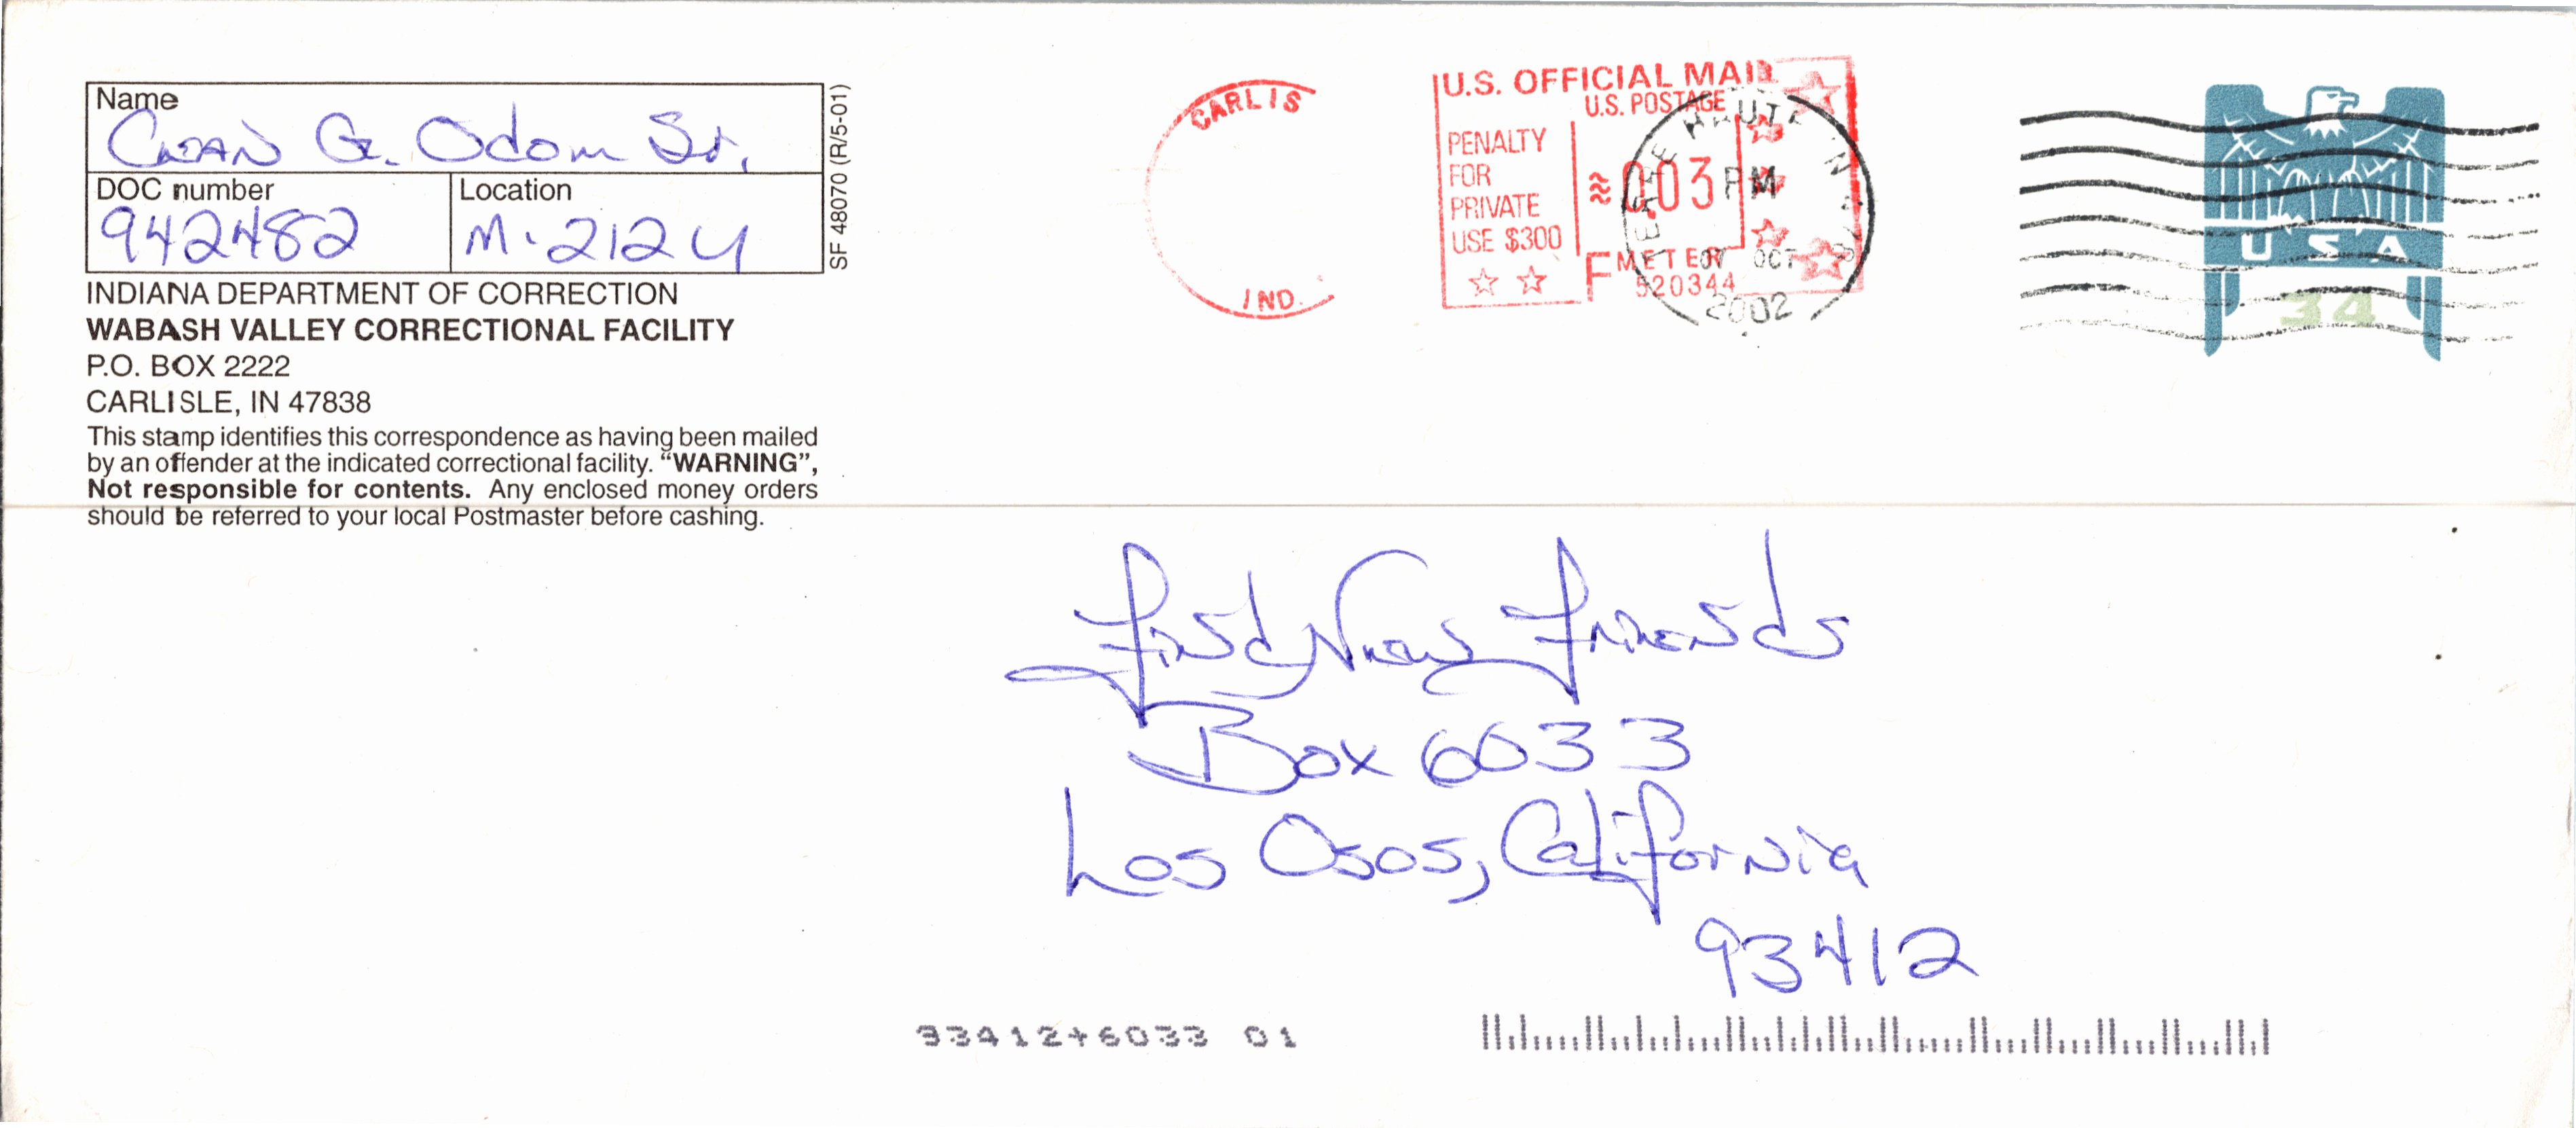 Name
G. Odom Sr.
DOC number
942482
Location
M-212 U
SF 48070 (R/5-01)
INDIANA DEPARTMENT OF CORRECTION
WABASH VALLEY CORRECTIONAL FACILITY
P.O. BOX 2222
CARLISLE, IN 47838
This stamp identifies this correspondence as having been mailed
by an offender at the indicated correctional facility. “WARNING”,
Not responsible for contents. Any enclosed money orders
should be referred to your local Postmaster before cashing.
CARLIS
IND.
U.S. OFFICIAL MAIL
U.S. POSTAGE
PENALTY
FOR
PRIVATE
USE $300
0.03
F METER
520344
TERRE HAUTE IN
PM
OCT
2002
USA
34
Find New Friends
Box 6033
Los Osos, California
93412
93412+6033 01